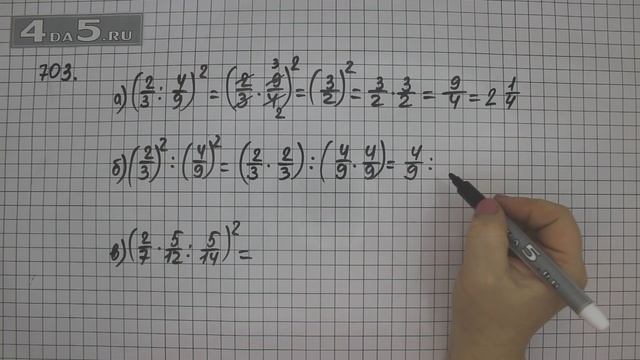 4DA5.RU
703.
а) (2/3 : 4/9)² = (2/3 · 9/4)² = (3/2)² = 3/2 · 3/2 = 9/4 = 2 1/4
3
2
б) (2/3)² : (4/9)² = (2/3 · 2/3) : (4/9 · 4/9) = 4/9 :
в) (2/7 · 5/12 : 5/14)² =